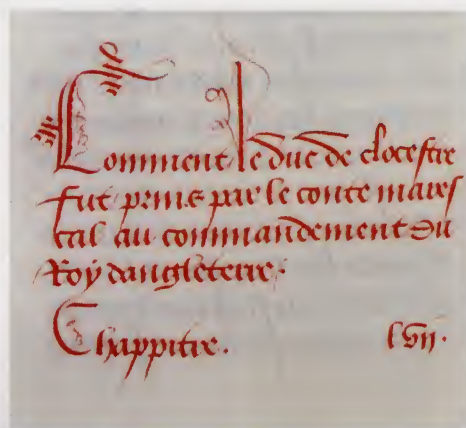 Comment le duc de clocestre
fut prins par le conte mares
cal au commandement du
Roy dangleterre.
Chappitre. lvii.